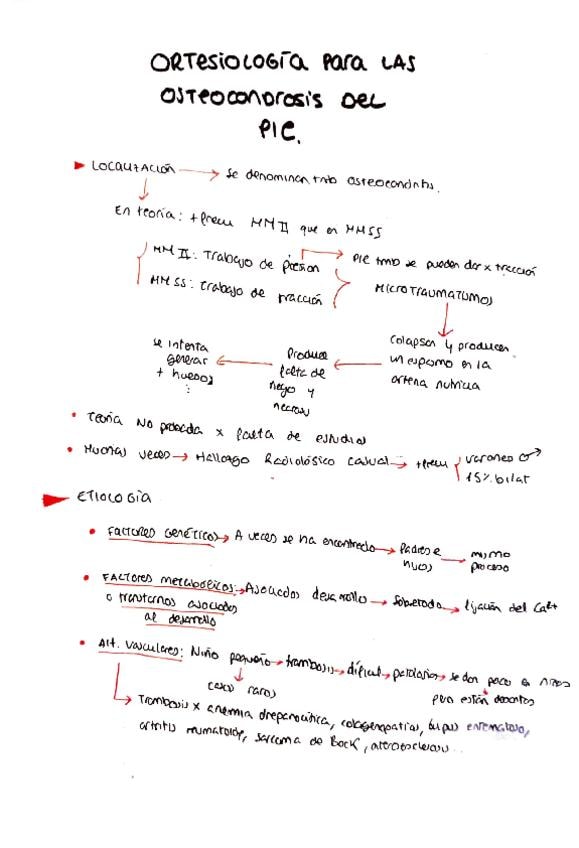 ORTESIOLOGÍA PARA LAS
OSTEOCONDROSIS DEL
PIE.
► LOCALIZACIÓN → Se denominan tmb osteocondritis.
En teoría: +frecu MMII que en MMSS
MMII: Trabajo de presion → PIE tmb se pueden dar x tracción
MMSS: trabajo de tracción
MICROTRAUMATISMOS
colapsan y producen
un espasmo en la
arteria nutricia
Produce
falta de
riego y
necrosis
se intenta
generar
+ huesos
• Teoría No probada x falta de estudios
• Muchas veces → Hallazgo Radiológico casual → +frecu { varones ♂
15% bilat
► ETIOLOGÍA
• FACTORES Genéticos → A veces se ha encontrado → Padres e
hijos → mismo
proceso
• FACTORES metabólicos: → Asociados desarrollo → sobretodo → fijación del Ca2+
o transtornos asociados
al desarrollo
• Alt. vasculares: Niño pequeño → trombosis → difícil → patologías → se dan poco en niños
casos raros
pero están descritos
→ Trombosis x anemia drepanocítica, colagenopatías, lupus eritematoso,
artritis reumatoide, sarcoma de Bock, aterosclerosis...